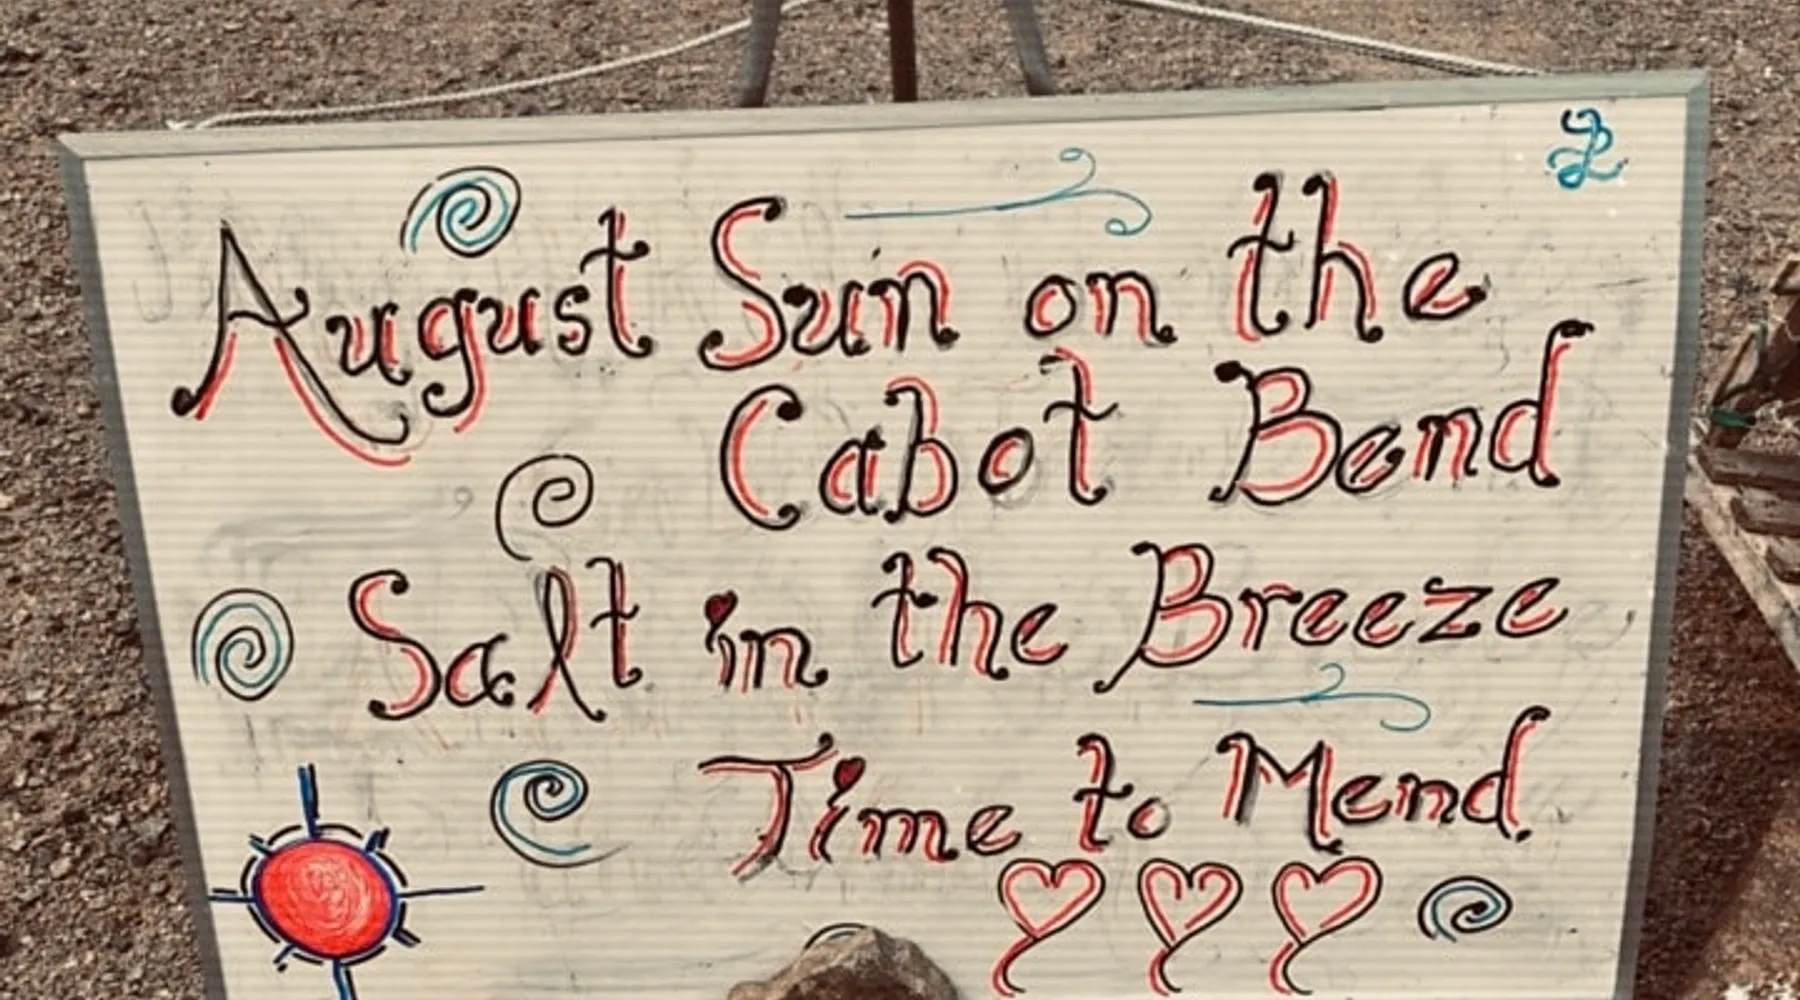 August Sun on the
Cabot Bend
Salt in the Breeze
Time to Mend